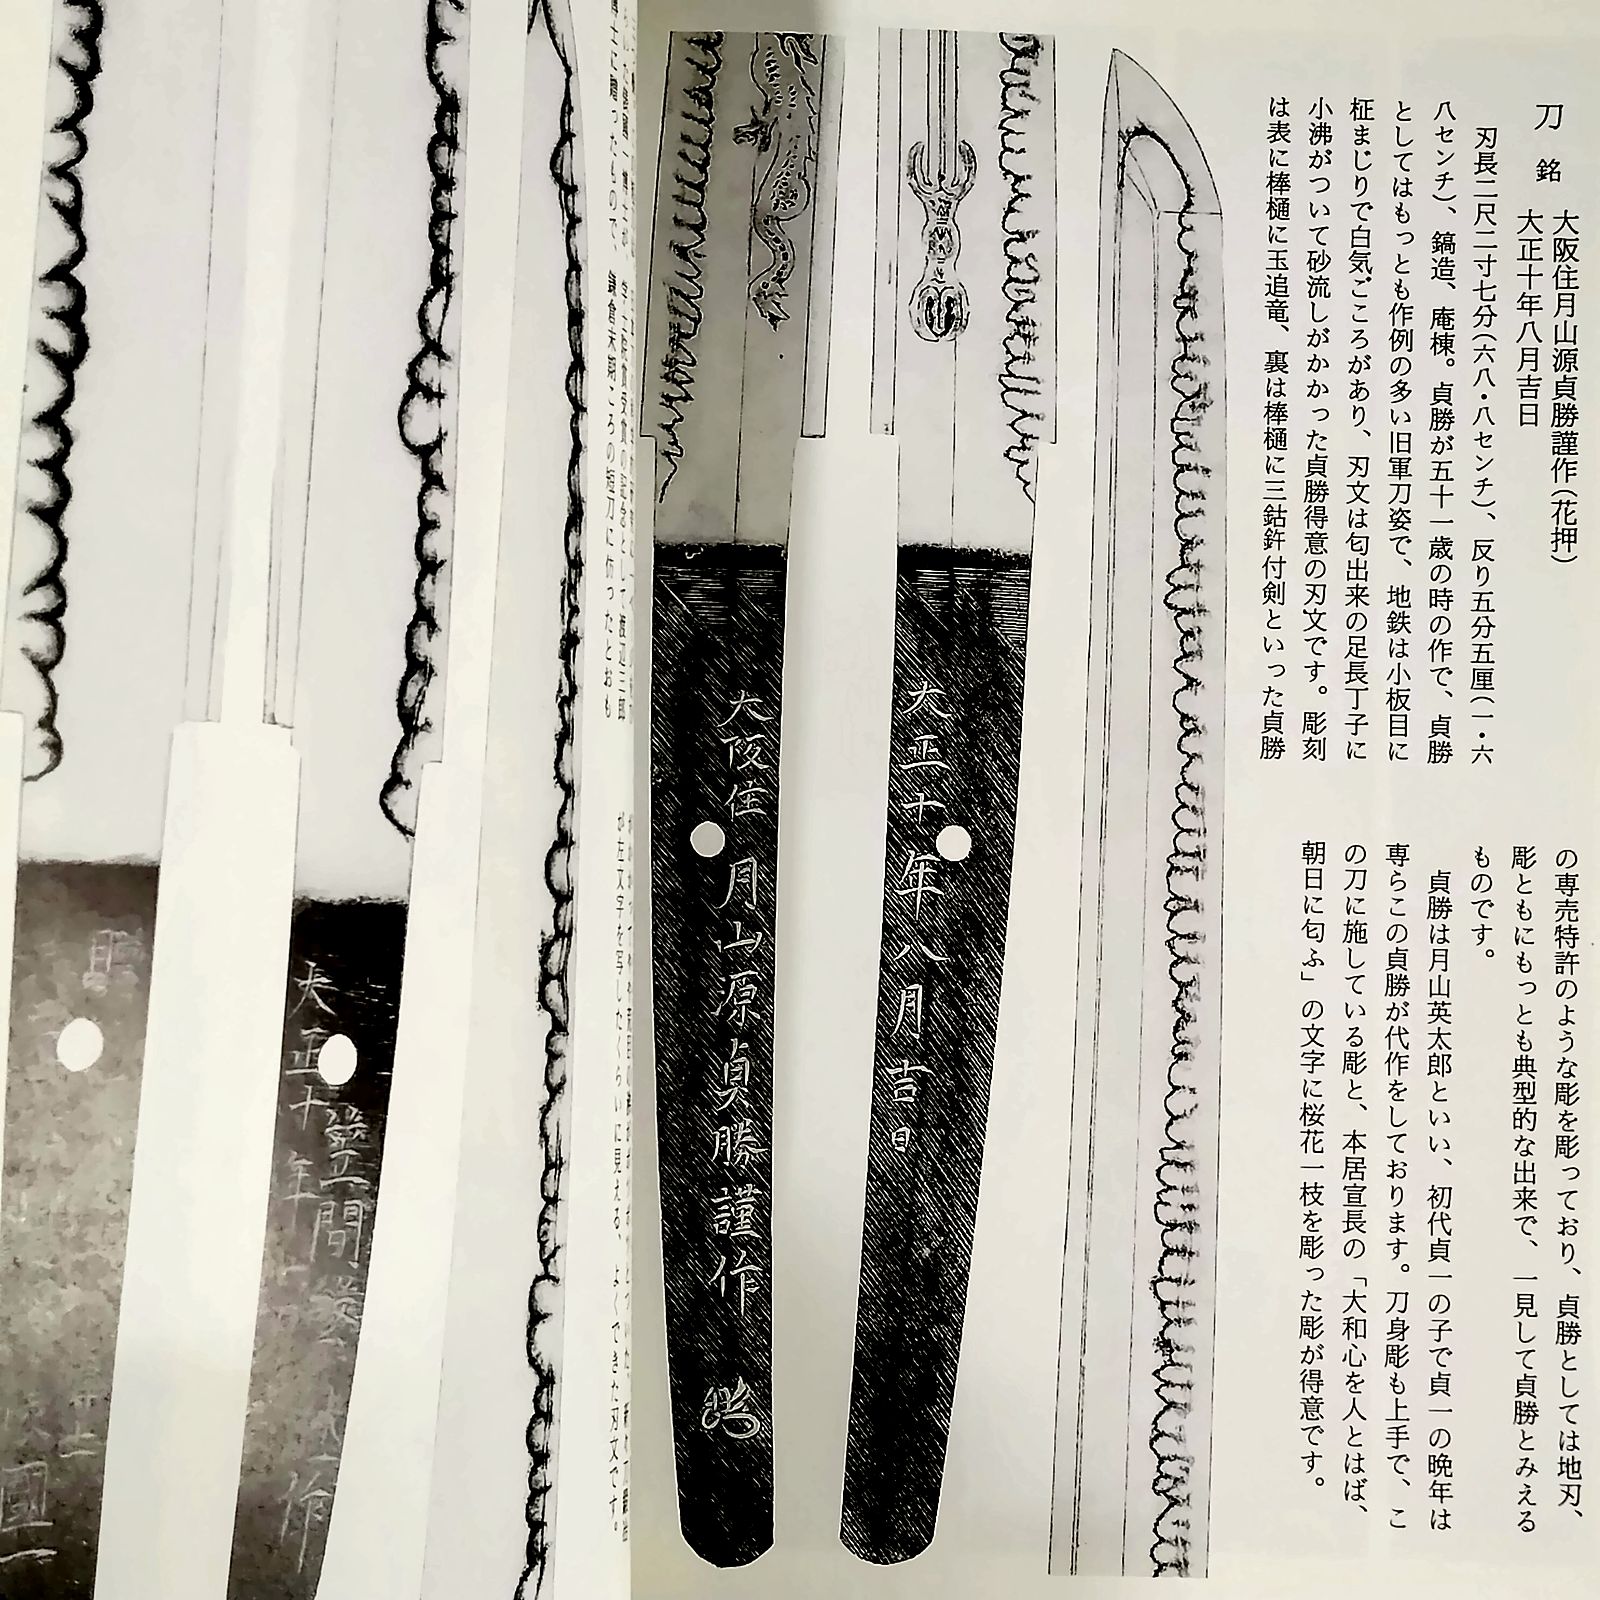 刀　銘　大阪住月山源貞勝謹作(花押)
大正十年八月吉日
刃長二尺二寸七分(六八・八センチ)、反り五分五厘(一・六
八センチ)、鎬造、庵棟。貞勝が五十一歳の時の作で、貞勝
としてはもっとも作例の多い旧軍刀姿で、地鉄は小板目に
柾まじりで白気ごころがあり、刃文は匂出来の足長丁子に
小沸がついて砂流しがかかった貞勝得意の刃文です。彫刻
は表に棒樋に玉追竜、裏は棒樋に三鈷鈼付剣といった貞勝
の専売特許のような彫を彫っており、貞勝としては地刃、
彫ともにもっとも典型的な出来で、一見して貞勝とみえる
ものです。
貞勝は月山英太郎といい、初代貞一の子で貞一の晩年は
専らこの貞勝が代作をしております。刀身彫も上手で、こ
の刀に施している彫と、本居宣長の「大和心を人とはば、
朝日に匂ふ」の文字に桜花一枝を彫った彫が得意です。
大正十年八月吉日
大阪住月山源貞勝謹作
鎌倉末期ごろの短刀に倣ったとおも
が左文字を写したくらいに見える、よくできた刃文です。
大正十年
國一